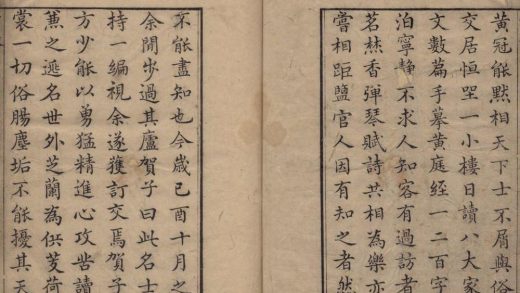 黄冠能默相天下士不屑與俗
交居恒坐一小樓日讀八大家
文數篇手摹黄庭経一二百字
泊寧静不求人知客有過訪者
茗爇香彈琴賦詩共相為樂亦
嘗相距鹽官人因有知之者然
不能盡知也今歳己酉十月之
余閒步過其廬賀子曰此名士
持一編視余遂獲訂交焉賀子
方少能以勇猛精進心攻苦讀
兼之遯名世外芝蘭為供芰荷
裳一切俗腸塵垢不能擾其天